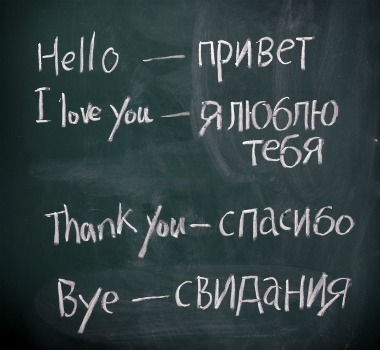 Hello — привет
I love you — я люблю
тебя
Thank you — спасибо
Bye — свидания